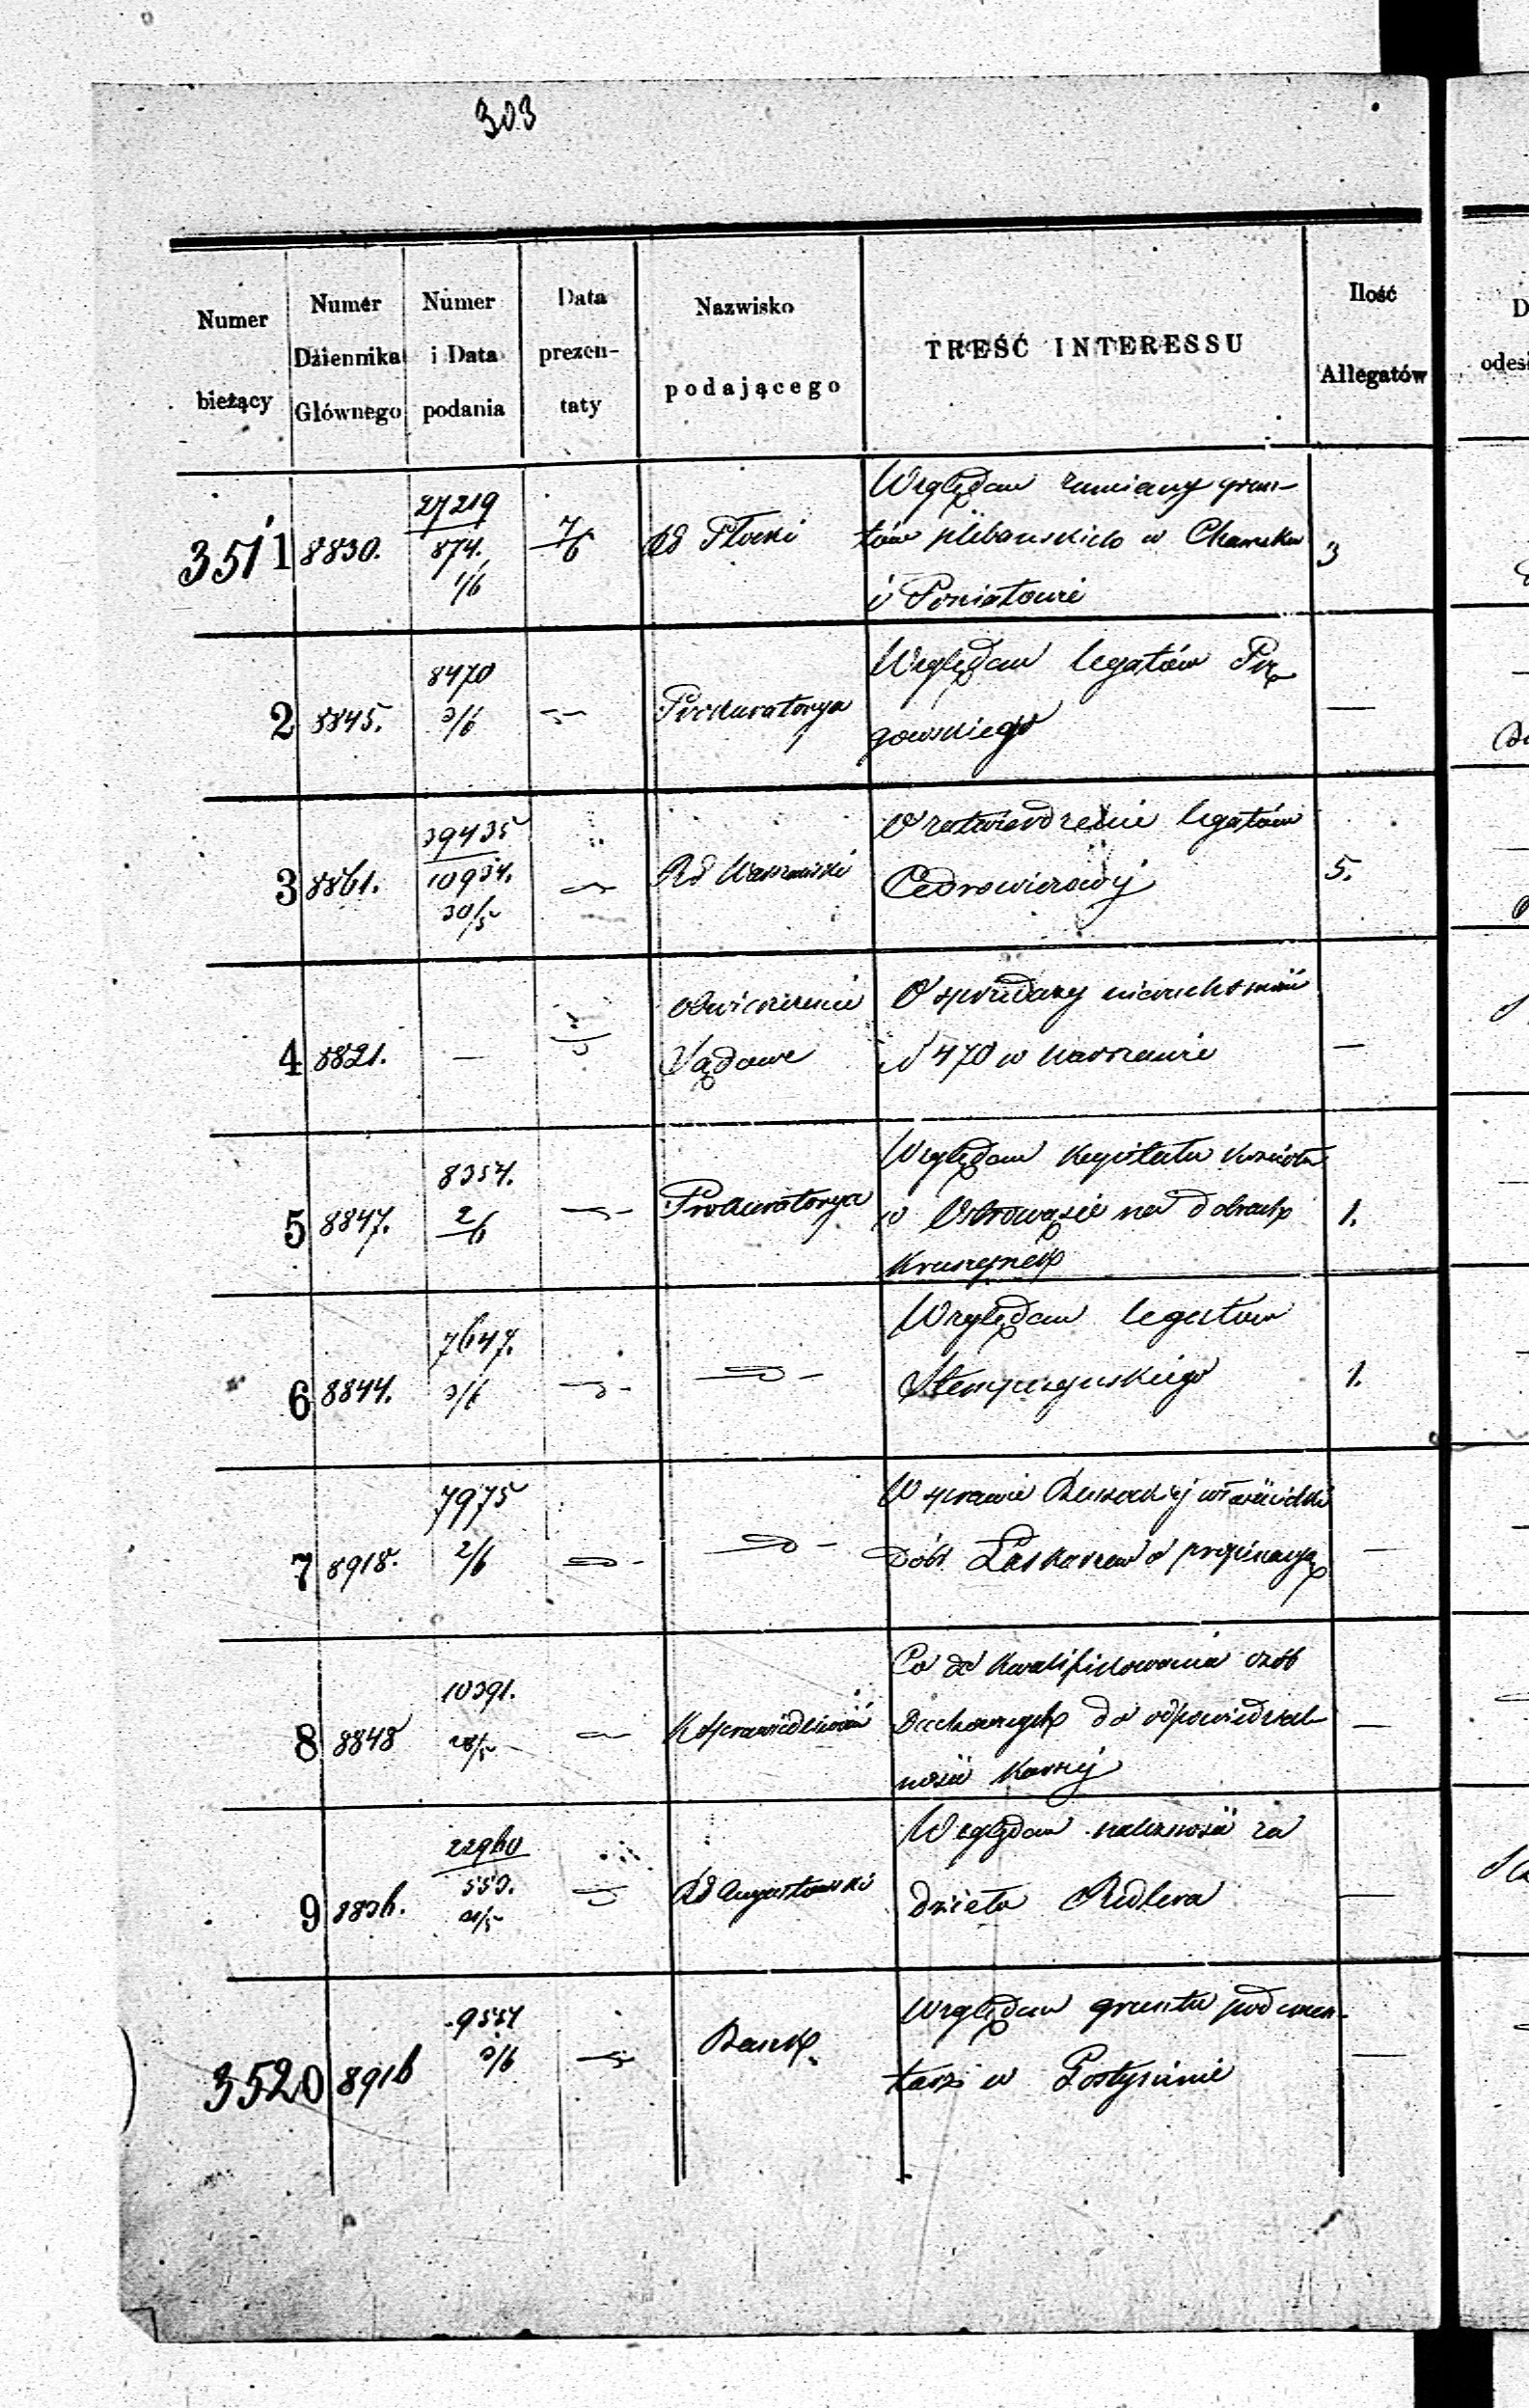 303
Numer bieżący
Numer Dziennika Głównego
Numer i Data podania
Data prezen- taty
Nazwisko podającego
TREŚĆ INTERESSU
Ilość Allegatów
3511 8830. 27219 874. 1/6 7/6 Rd Płocki Względem zamiany grun-
tów plebańskich w 3
i Poniatowie
2 8845. 8470 3/6 Prokuratorya Względem legatów
gowskiego —
3 8861. 39435 10934. 30/5 Rd Warszawski O zatwierdzenie legatów
5.
4 8821. — Obwieszczenie O sprzedaży nieruchomości
Sądowe N 470 w Warszawie —
5 8847. 8354. 2/6 Prokuratorya Względem kapitału kościoła
w Ostrowąsie na dobrach 1.
Kruszynek
6 8844. 7647. 3/6 Względem legatów
1.
7 8918. 7975 2/6 W sprawie właścicielki
dóbr Łaskarzew o propinacyą —
8 8848 10391. 28/5 K Sprawiedliwości Co do kwalifikowania osób
Duchownych do odpowiedzial- —
ności karnéj
9 8836. 22960 550. 31/5 Rd Augustowski Względem należności za
dzieła —
3520 8916 9554 3/6 Bank Względem gruntu pod cmen-
tarz w Gostyninie —